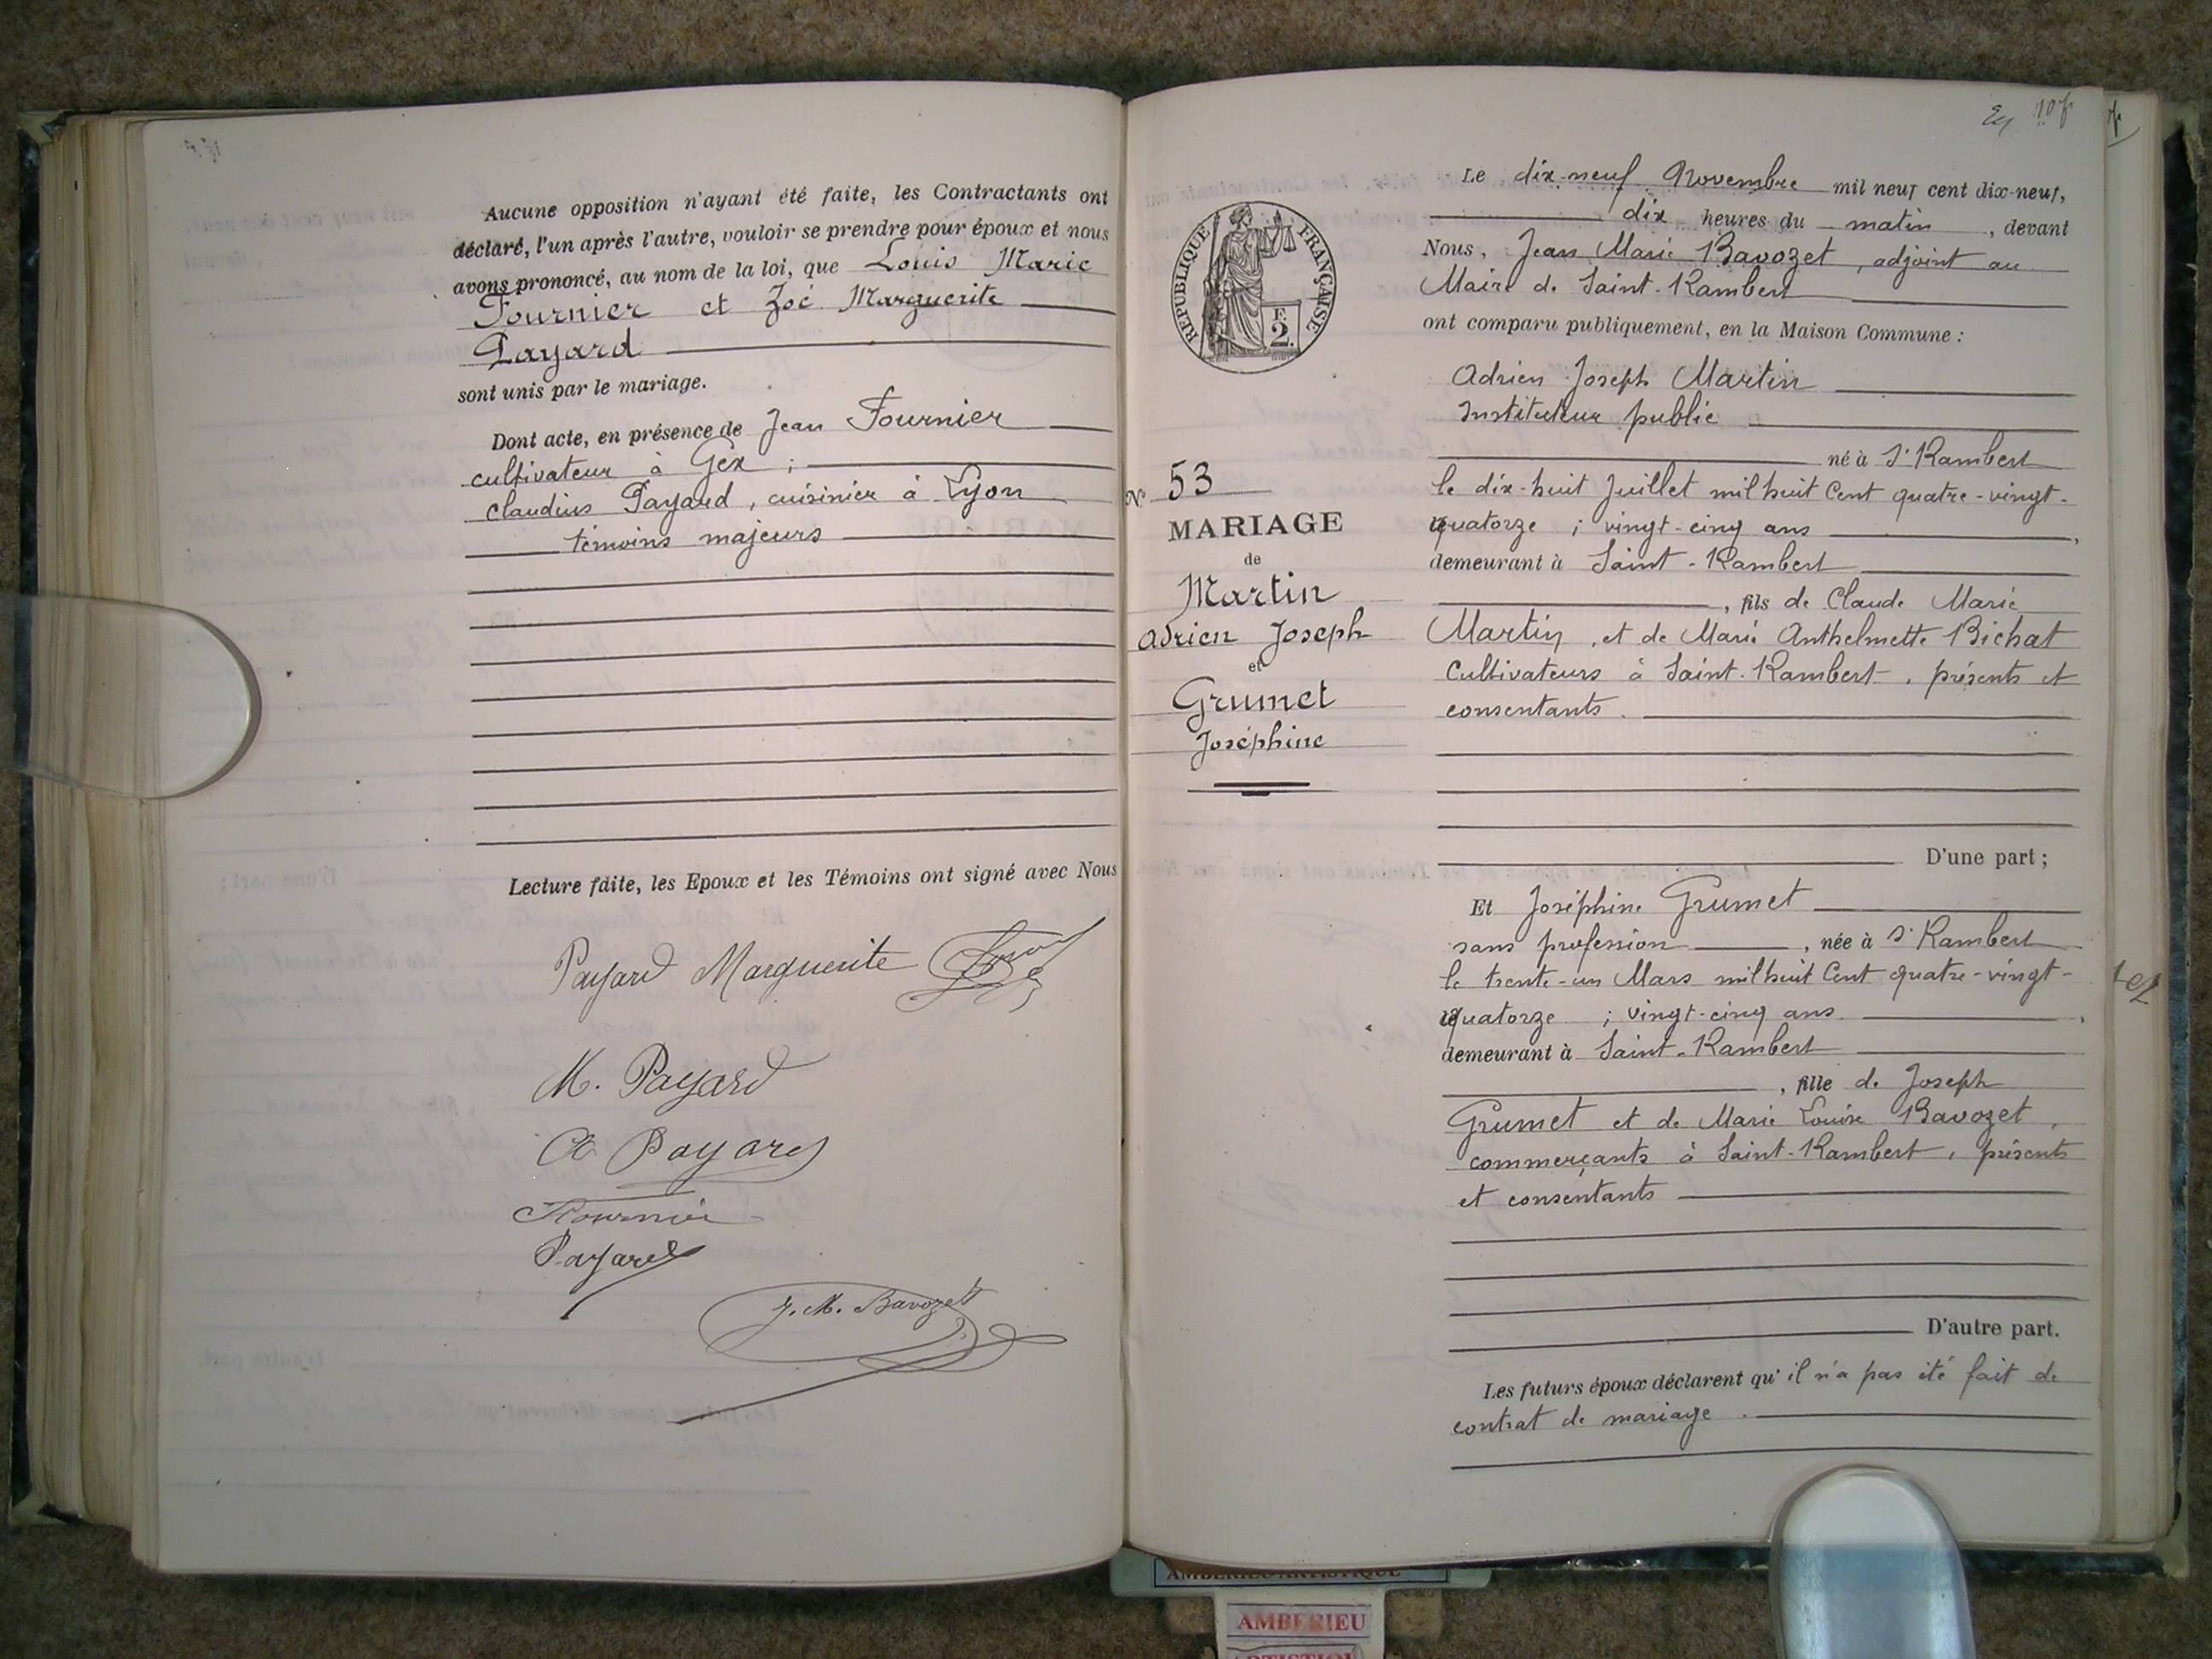 Aucune opposition n'ayant été faite, les Contractants ont
déclaré, l'un après l'autre, vouloir se prendre pour époux et nous
avons prononcé, au nom de la loi, que Louis Marie
Fournier et Zoé Marguerite
Payard
sont unis par le mariage.
Dont acte, en présence de Jean Fournier
cultivateur à Gex ;
Claudius Payard, cuisinier à Lyon
témoins majeurs
Lecture faite, les Epoux et les Témoins ont signé avec Nous
Payard Marguerite
M. Payard
Payard
Fournier
Payard
J. M. Bavozet
RÉPUBLIQUE FRANÇAISE
F.
2.
N° 53
MARIAGE
de
Martin
Adrien Joseph
et
Grumet
Joséphine
Le dix-neuf Novembre mil neuf cent dix-neuf,
dix heures du matin, devant
Nous, Jean Marie Bavozet, adjoint au
Maire de Saint-Rambert
ont comparu publiquement, en la Maison Commune :
Adrien Joseph Martin
Instituteur public
né à St Rambert
le dix-huit Juillet mil huit Cent quatre-vingt-
quatorze ; vingt-cinq ans,
demeurant à Saint-Rambert
, fils de Claude Marie
Martin, et de Marie Anthelmette Bichat
Cultivateurs à Saint-Rambert, présents et
consentants.
D'une part ;
Et Joséphine Grumet
sans profession, née à St Rambert
le trente-un Mars mil huit Cent quatre-vingt-
quatorze ; vingt-cinq ans.
demeurant à Saint-Rambert
, fille de Joseph
Grumet et de Marie Louise Bavozet,
commerçants à Saint-Rambert, présents
et consentants
D'autre part.
Les futurs époux déclarent qu'il n'a pas été fait de
contrat de mariage.
AMBERIEU ARTISTIQUE
AMBERIEU